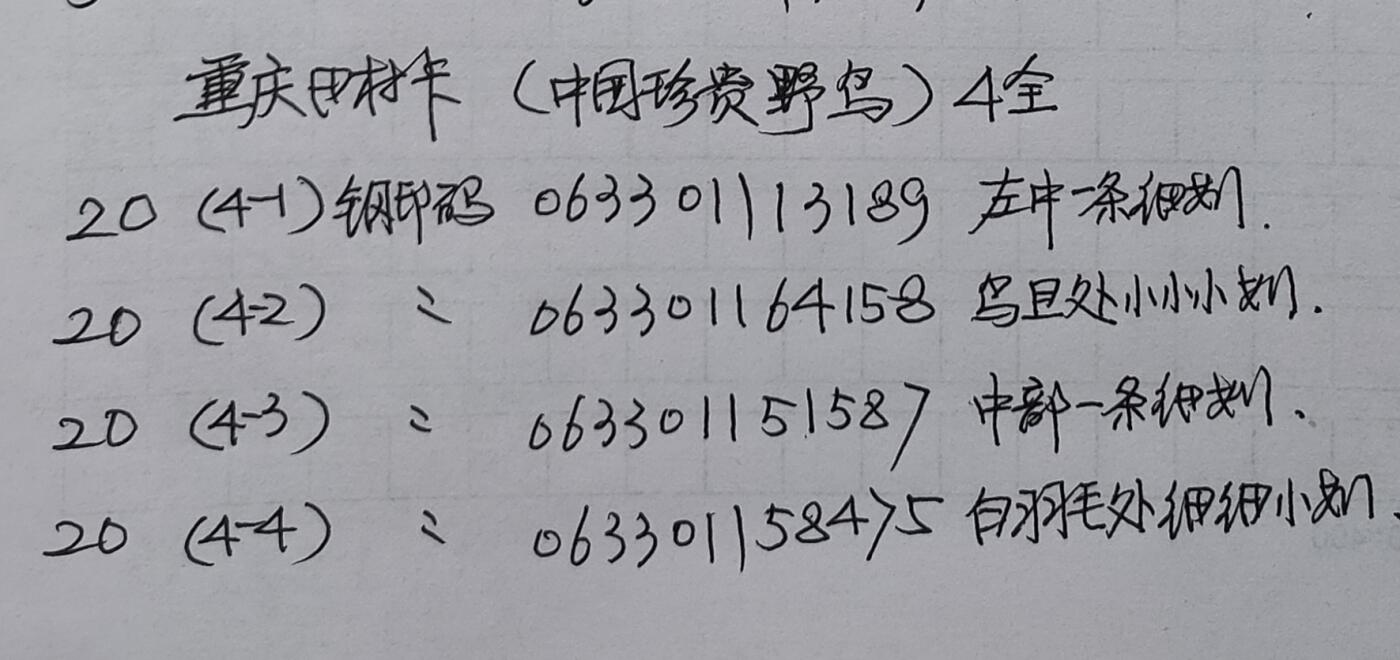 重庆田村卡（中国珍贵野鸟）4全
20 (4-1) 钢印码 063301113189 左中一条细划.
20 (4-2) 〃 063301164158 鸟且处小小小划.
20 (4-3) 〃 063301151587 中部一条细划、
20 (4-4) 〃 063301158475 白羽毛处细细小划、